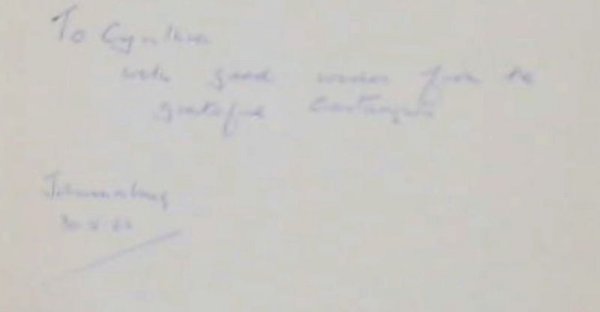 To Cynthia
with good wishes from the
grateful
Johannesburg